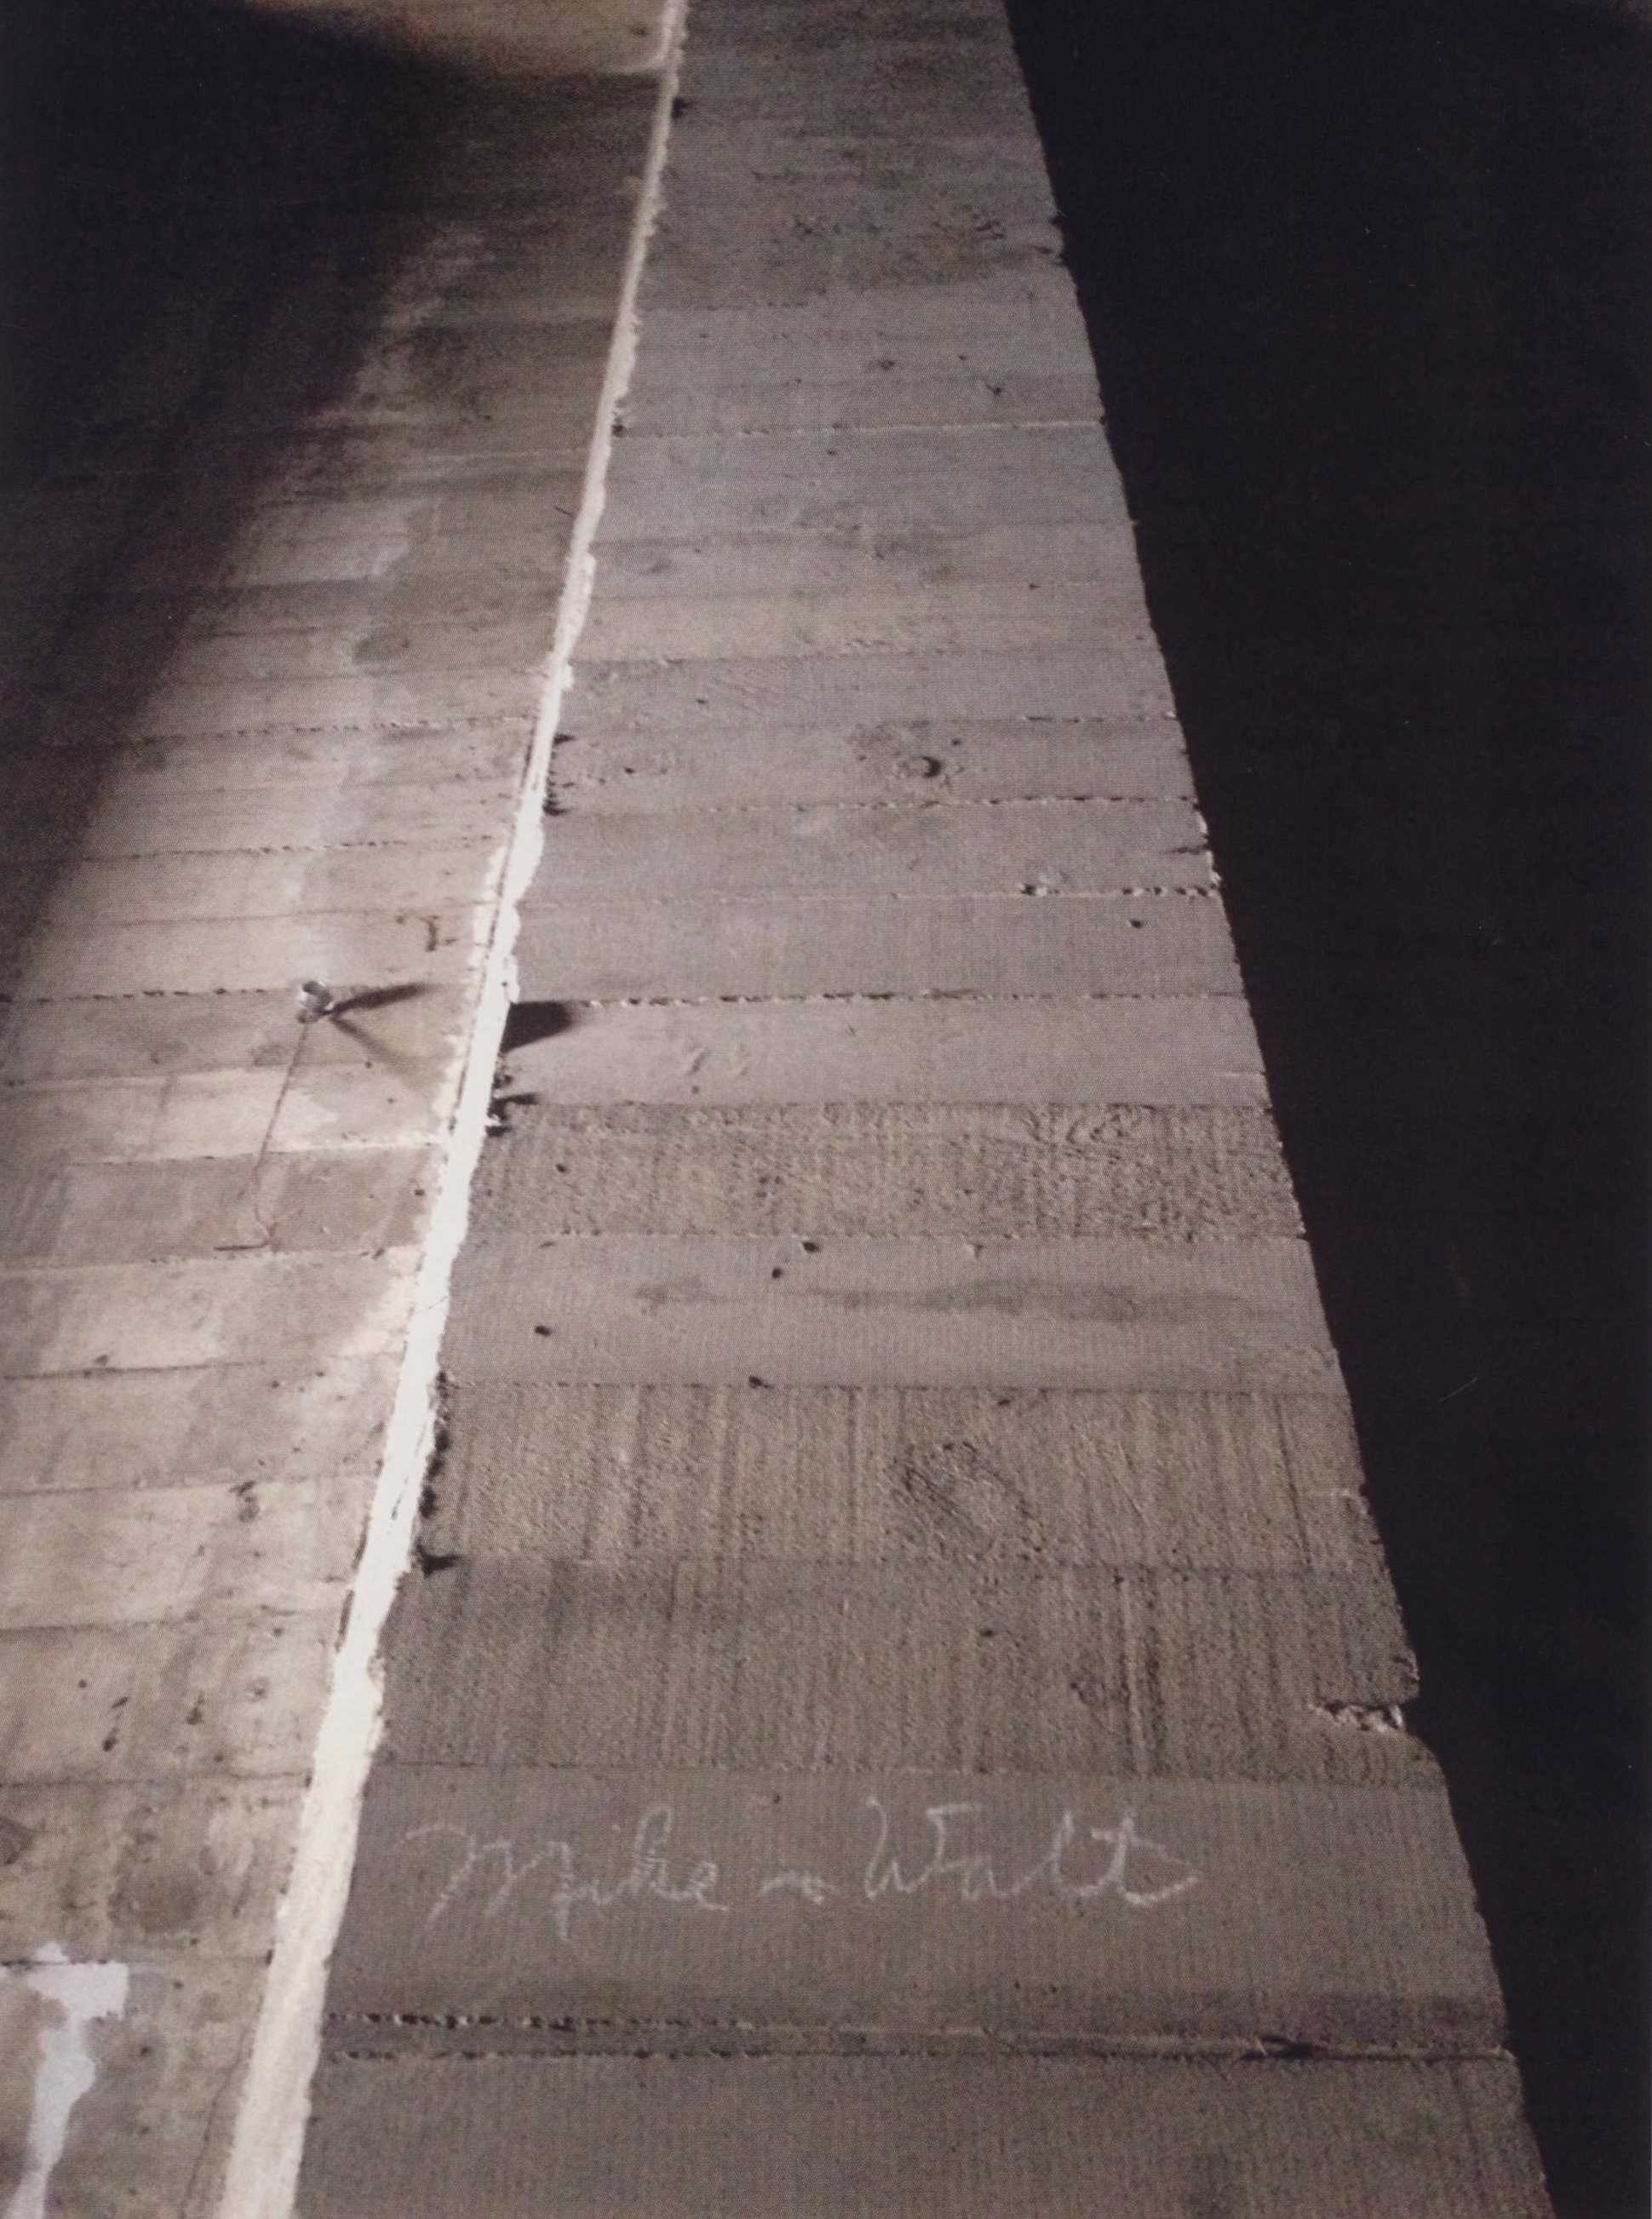 Mike n Walt